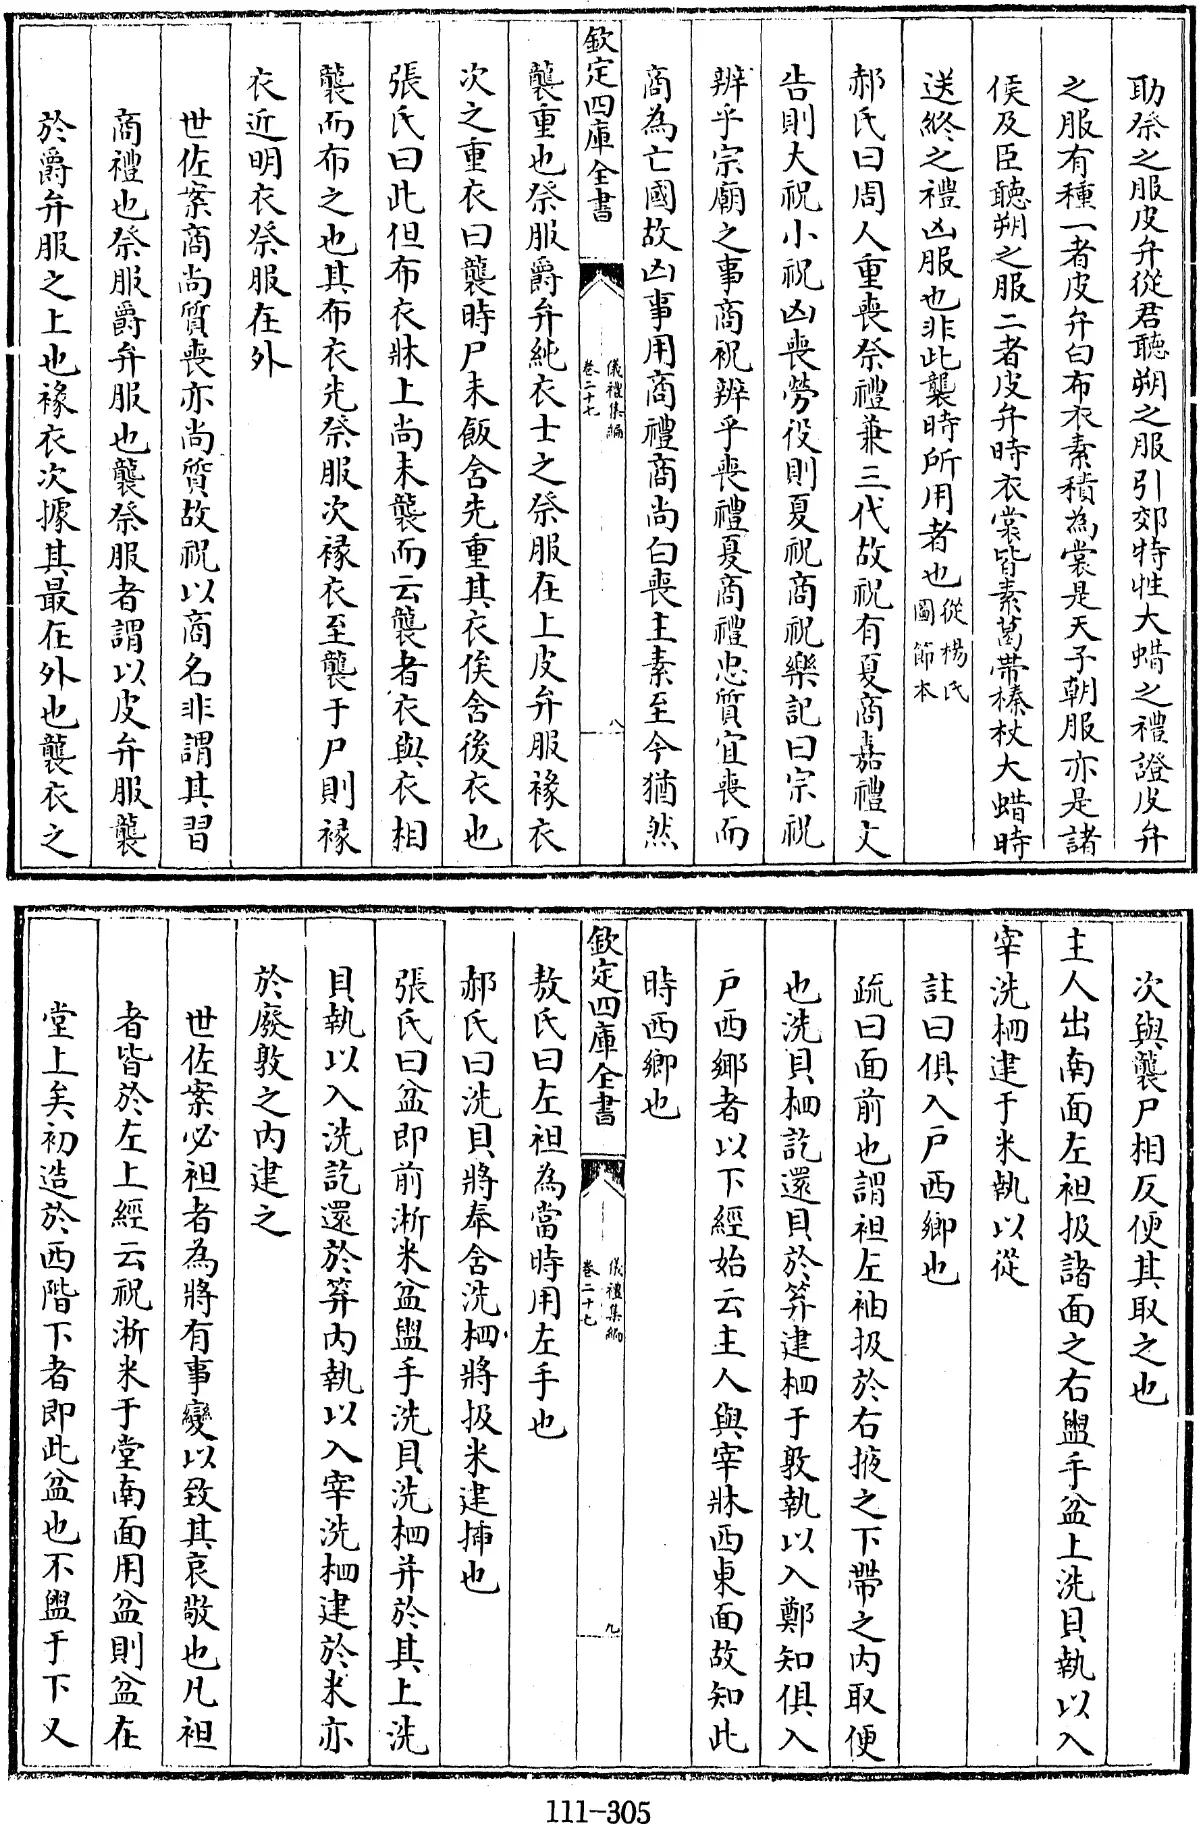 助祭之服皮弁從君聽朔之服引郊特牲大蜡之禮證皮弁
之服有種一者皮弁白布衣素積為裳是天子朝服亦是諸
侯及臣聽朔之服二者皮弁時衣裳皆素葛帶榛杖大蜡時
送終之禮凶服也非此襲時所用者也從楊氏圖節本
郝氏曰周人重喪祭禮兼三代故祝有夏商嘉禮文
告則大祝小祝凶喪勞役則夏祝商祝樂記曰宗祝
辨乎宗廟之事商祝辨乎喪禮夏商禮忠質宜喪而
商為亡國故凶事用商禮商尚白喪主素至今猶然
欽定四庫全書
儀禮集編
卷二十七
八
襲重也祭服爵弁純衣士之祭服在上皮弁服褖衣
次之重衣曰襲時尸未飯含先重其衣俟含後衣也
張氏曰此但布衣牀上尚未襲而云襲者衣與衣相
襲而布之也其布衣先祭服次褖衣至襲于尸則褖
衣近明衣祭服在外
世佐案商尚質喪亦尚質故祝以商名非謂其習
商禮也祭服爵弁服也襲祭服者謂以皮弁服襲
於爵弁服之上也褖衣次據其最在外也襲衣之
次與襲尸相反便其取之也
主人出南面左袒扱諸面之右盥手盆上洗貝執以入
宰洗柶建于米執以從
註曰俱入戸西鄉也
疏曰面前也謂袒左袖扱於右掖之下帶之内取便
也洗貝柶訖還貝於笲建柶于敦執以入鄭知俱入
戸西鄉者以下經始云主人與宰牀西東面故知此
時西鄉也
欽定四庫全書
儀禮集編
卷二十七
九
敖氏曰左袒為當時用左手也
郝氏曰洗貝將奉含洗柶將扱米建挿也
張氏曰盆即前淅米盆盥手洗貝洗柶并於其上洗
貝執以入洗訖還於笲内執以入宰洗柶建於米亦
於廢敦之内建之
世佐案必袒者為將有事變以致其哀敬也凡袒
者皆於左上經云祝淅米于堂南面用盆則盆在
堂上矣初造於西階下者即此盆也不盥于下又
111-305